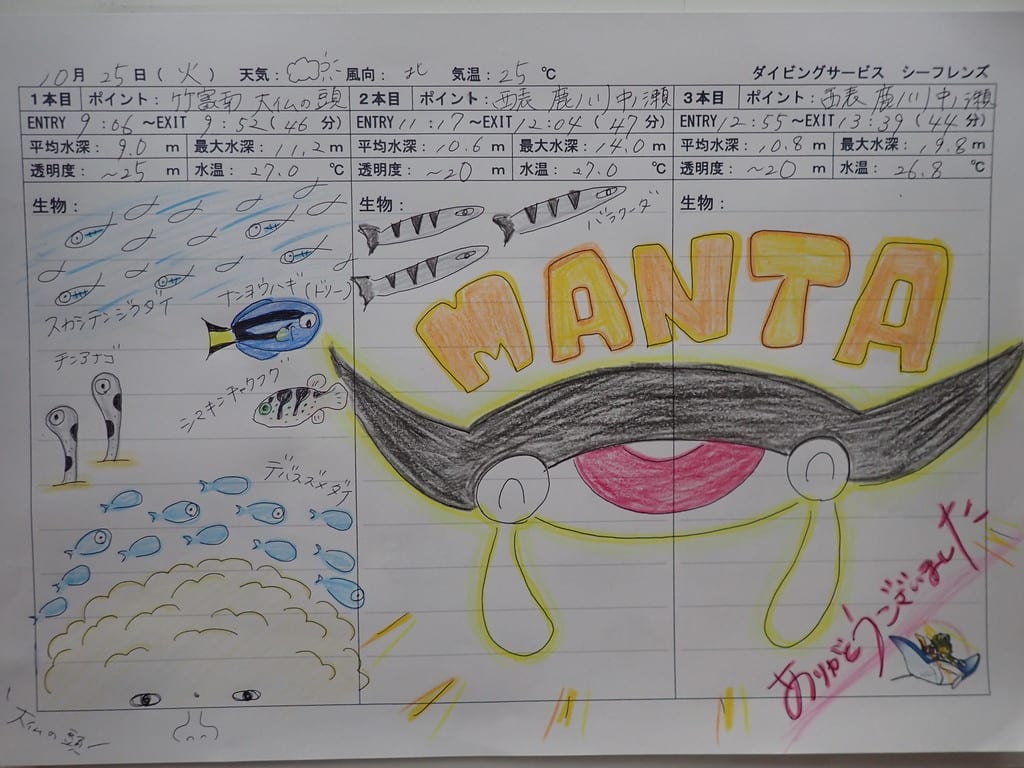 10月 25日(火) 天気: 風向: 北 気温: 25 ℃ ダイビングサービス シーフレンズ
1本目 ポイント: 竹富南 大仏の頭 2本目 ポイント: 西表 鹿ノ川 中ノ瀬 3本目 ポイント: 西表 鹿ノ川 中ノ瀬
ENTRY 9:06 ~EXIT 9:52 (46 分) ENTRY 11:17 ~EXIT 12:04 (47 分) ENTRY 12:55 ~EXIT 13:39 (44 分)
平均水深: 9.0 m 最大水深: 11.2 m 平均水深: 10.6 m 最大水深: 14.0 m 平均水深: 10.8 m 最大水深: 19.8 m
透明度: ~25 m 水温: 27.0 ℃ 透明度: ~20 m 水温: 27.0 ℃ 透明度: ~20 m 水温: 26.8 ℃
生物: 生物: 生物:
バラクーダ
スカシテンジクダイ
ナンヨウハギ(ドリー)
チンアナゴ
シマキンチャクフグ
デバスズメダイ
MANTA
ありがとうございました!
大仏の頭